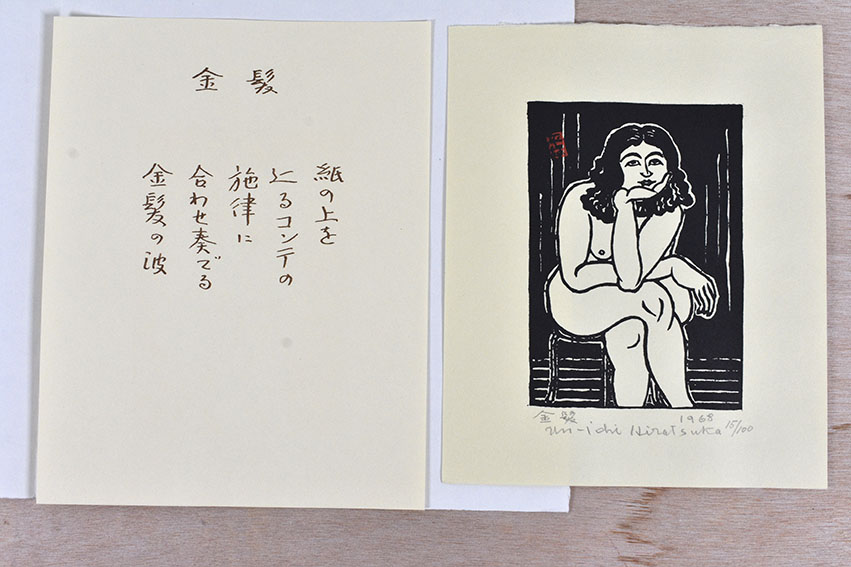 金髪
紙の上を
辷るコンテの
施律に
合わせ奏でる
金髪の波
金髪 1968
Un-ichi Hiratsuka 15/100